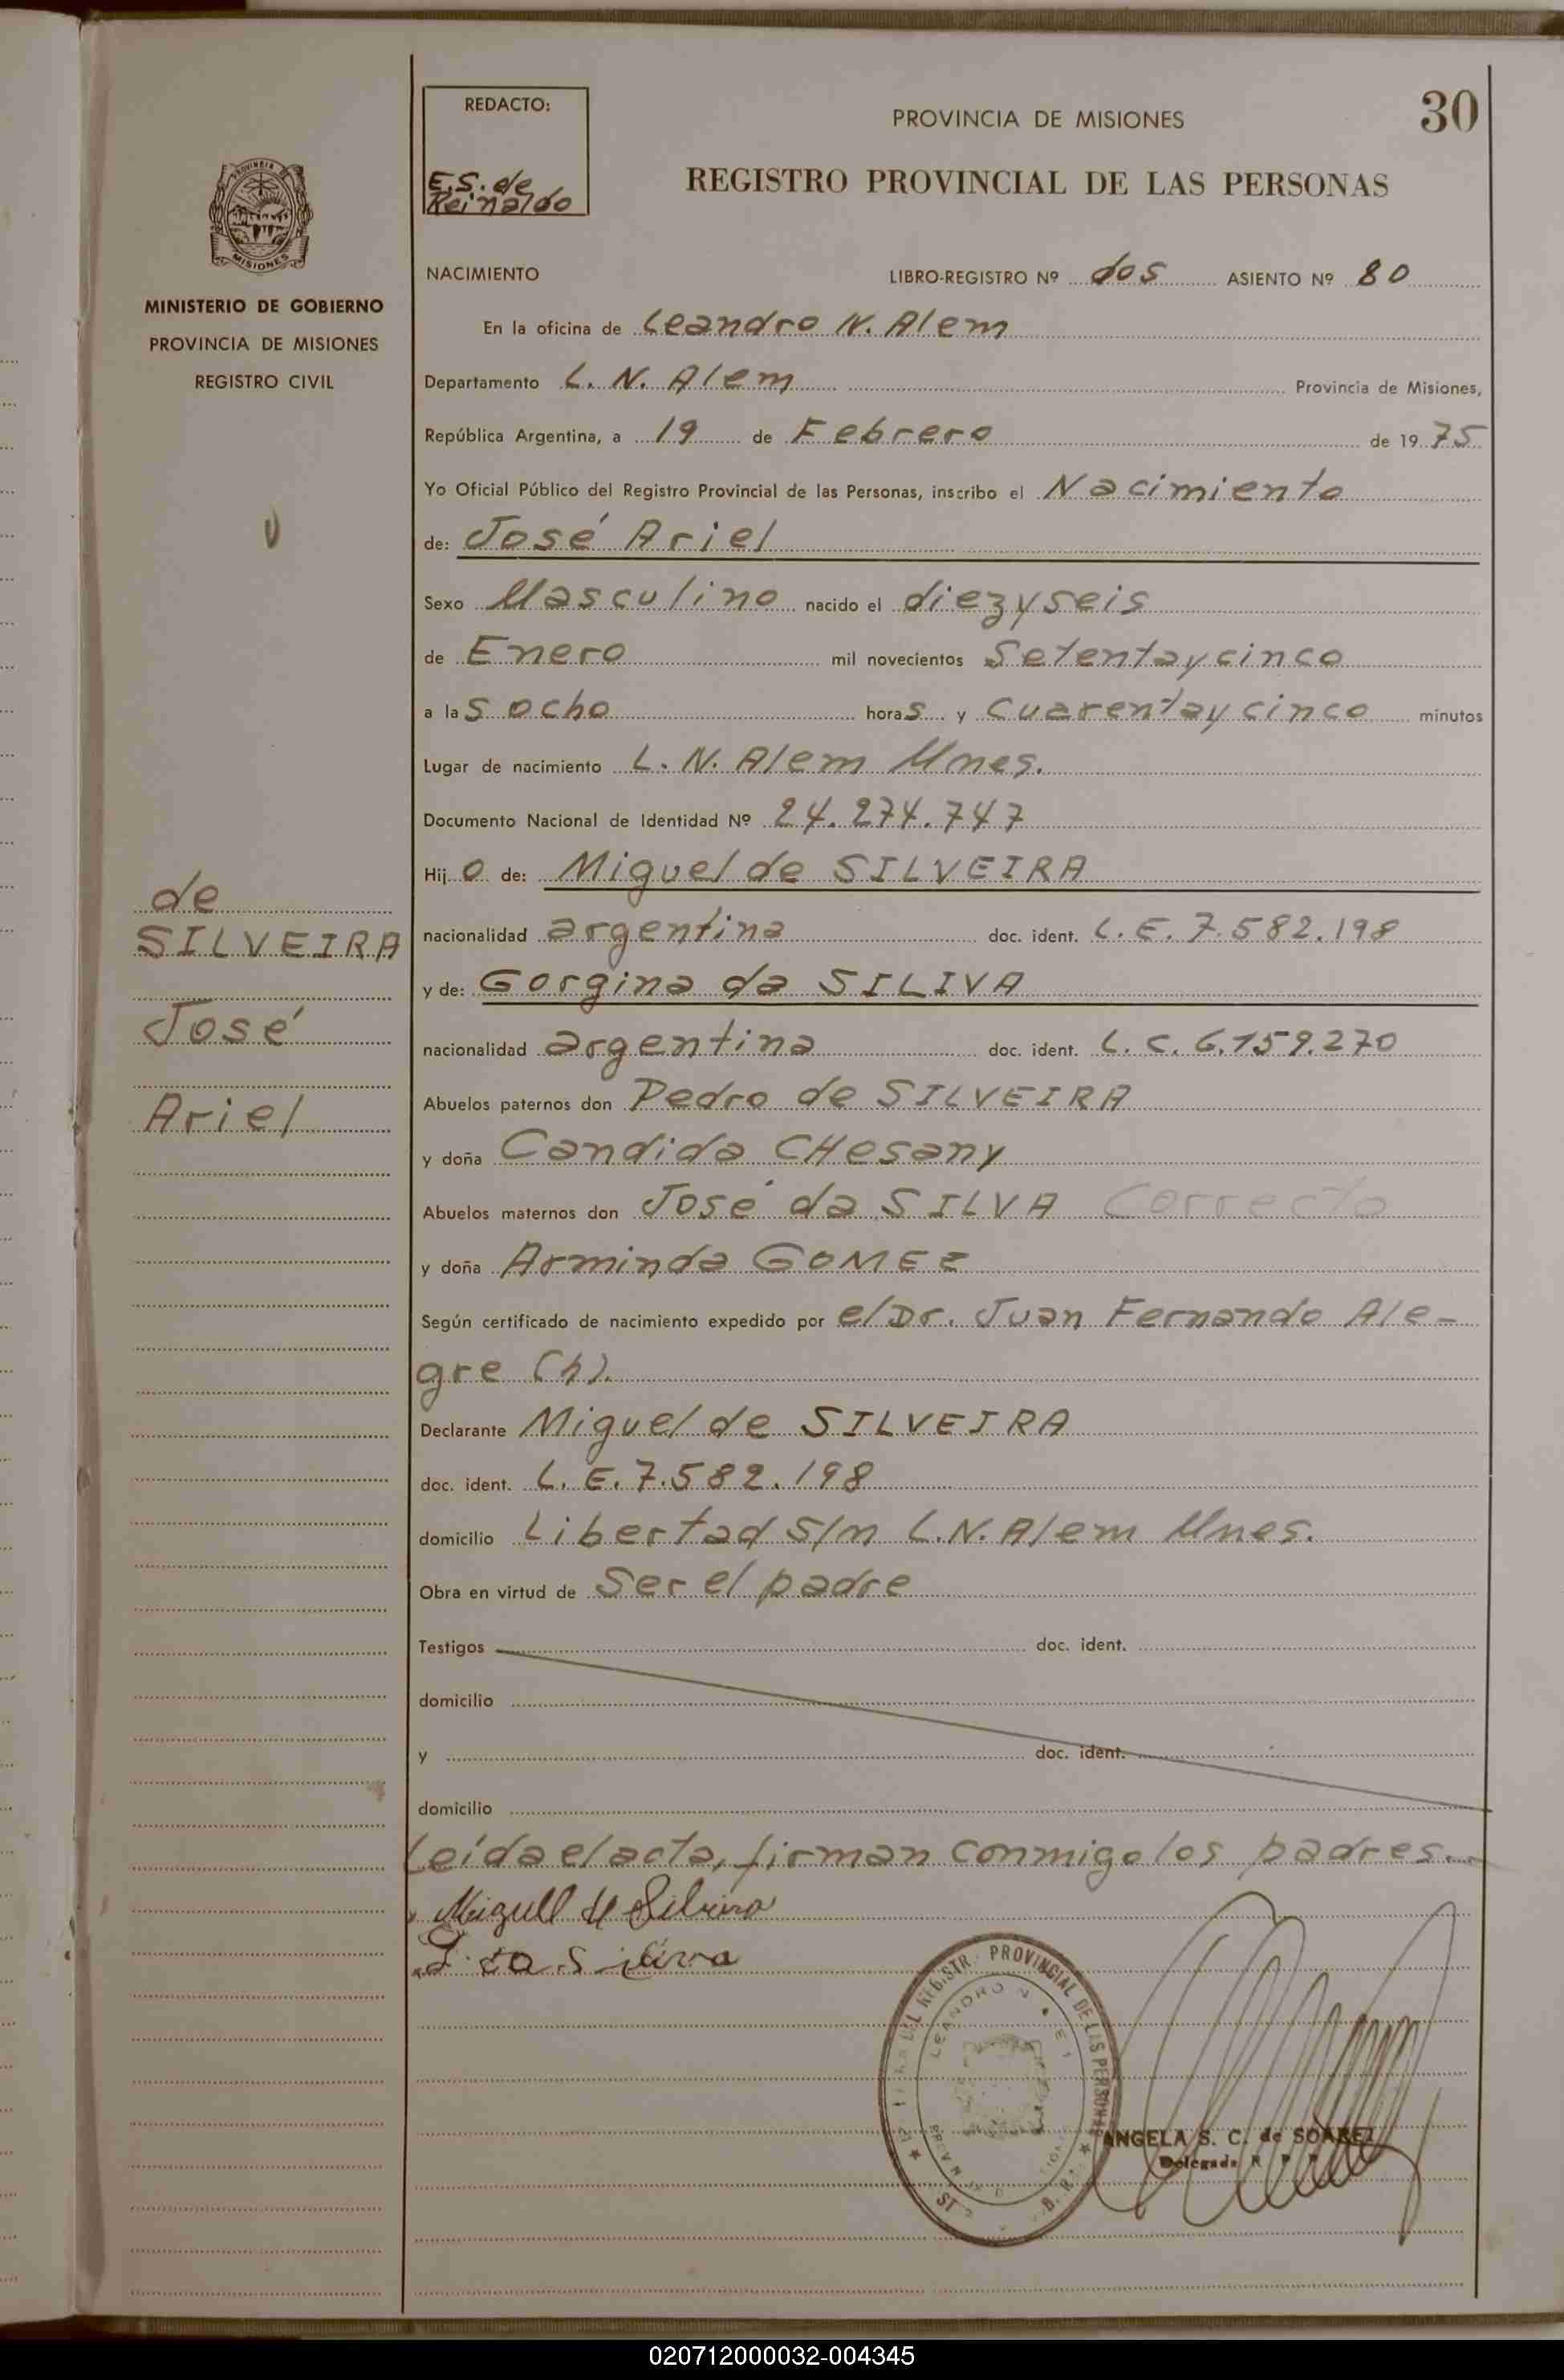 REDACTO:
E.S. de
Reinaldo
PROVINCIA DE MISIONES
30
REGISTRO PROVINCIAL DE LAS PERSONAS
PROVINCIA
MISIONES
MINISTERIO DE GOBIERNO
PROVINCIA DE MISIONES
REGISTRO CIVIL
de
SILVEIRA
José
Ariel
NACIMIENTO LIBRO-REGISTRO Nº dos ASIENTO Nº 80
En la oficina de Leandro N. Alem
Departamento L. N. Alem Provincia de Misiones,
República Argentina, a 19 de Febrero de 1975
Yo Oficial Público del Registro Provincial de las Personas, inscribo el Nacimiento
de: José Ariel
Sexo Masculino nacido el diezyseis
de Enero mil novecientos Setentaycinco
a las ocho horas y Cuarentaycinco minutos
Lugar de nacimiento L. N. Alem Mnes.
Documento Nacional de Identidad Nº 24.274.747
Hijo de: Miguel de SILVEIRA
nacionalidad argentina doc. ident. L. E. 7.582.198
y de: Gorgina da SILIVA
nacionalidad argentina doc. ident. L. C. 6.159.270
Abuelos paternos don Pedro de SILVEIRA
y doña Candida CHesany
Abuelos maternos don José da SILVA Correcto
y doña Arminda GOMEZ
Según certificado de nacimiento expedido por el Dr. Juan Fernando Ale-
gre (h).
Declarante Miguel de SILVEIRA
doc. ident. L. E. 7.582.198
domicilio Libertad S/n L.N. Alem Mnes.
Obra en virtud de Ser el padre
Testigos doc. ident.
domicilio
y doc. ident.
domicilio
Leída el acta, firman conmigo los padres.
Miguel de Silveira
REGISTR. PROVINCIAL DE LAS PERSONAS
LEANDRO N.
ANGELA S. C. de SOAREZ
Delegada R P P
020712000032-004345